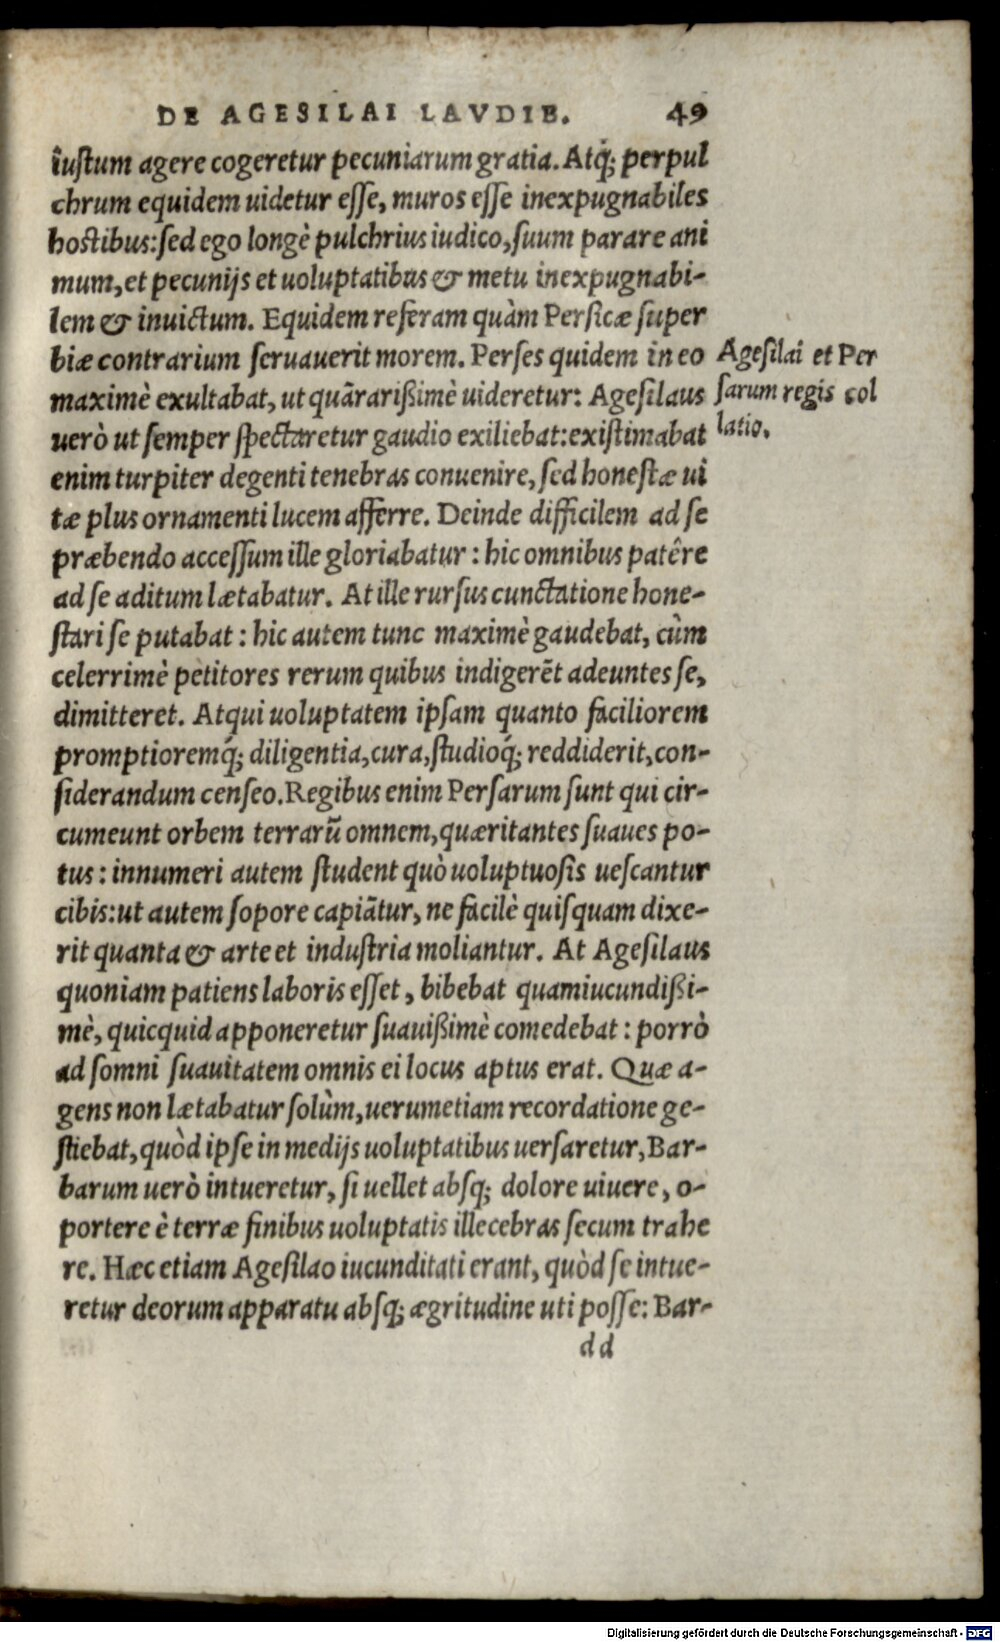 DE AGESILAI LAVDIB. 49
iustum agere cogeretur pecuniarum gratia. Atq́; perpul
chrum equidem uidetur esse, muros esse inexpugnabiles
hostibus: sed ego longè pulchrius iudico, suum parare ani
mum, et pecunijs et uoluptatibus & metu inexpugnabi-
lem & inuictum. Equidem referam quàm Persicæ super
biæ contrarium seruauerit morem. Perses quidem in eo
maximè exultabat, ut quã rarißimè uideretur: Agesilaus
uerò ut semper spectaretur gaudio exiliebat: existimabat
enim turpiter degenti tenebras conuenire, sed honestæ ui
tæ plus ornamenti lucem afferre. Deinde difficilem ad se
præbendo accessum ille gloriabatur: hic omnibus patêre
ad se aditum lætabatur. At ille rursus cunctatione hone-
stari se putabat: hic autem tunc maximè gaudebat, cùm
celerrimè petitores rerum quibus indigerẽt adeuntes se,
dimitteret. Atqui uoluptatem ipsam quanto faciliorem
promptioremq́; diligentia, cura, studioq́; reddiderit, con-
siderandum censeo. Regibus enim Persarum sunt qui cir-
cumeunt orbem terrarũ omnem, quæritantes suaues po-
tus: innumeri autem student quò uoluptuosis uescantur
cibis: ut autem sopore capiãtur, ne facilè quisquam dixe-
rit quanta & arte et industria moliantur. At Agesilaus
quoniam patiens laboris esset, bibebat quamiucundißi-
mè, quicquid apponeretur suauißimè comedebat: porrò
ad somni suauitatem omnis ei locus aptus erat. Quæ a-
gens non lætabatur solùm, uerumetiam recordatione ge-
stiebat, quòd ipse in medijs uoluptatibus uersaretur, Bar-
barum uerò intueretur, si uellet absq; dolore uiuere, o-
portere è terræ finibus uoluptatis illecebras secum trahe
re. Hæc etiam Agesilao iucunditati erant, quòd se intue-
retur deorum apparatu absq; ægritudine uti posse: Bar-
dd
Agesilai et Per
sarum regis col
latio.
Digitalisierung gefördert durch die Deutsche Forschungsgemeinschaft - DFG